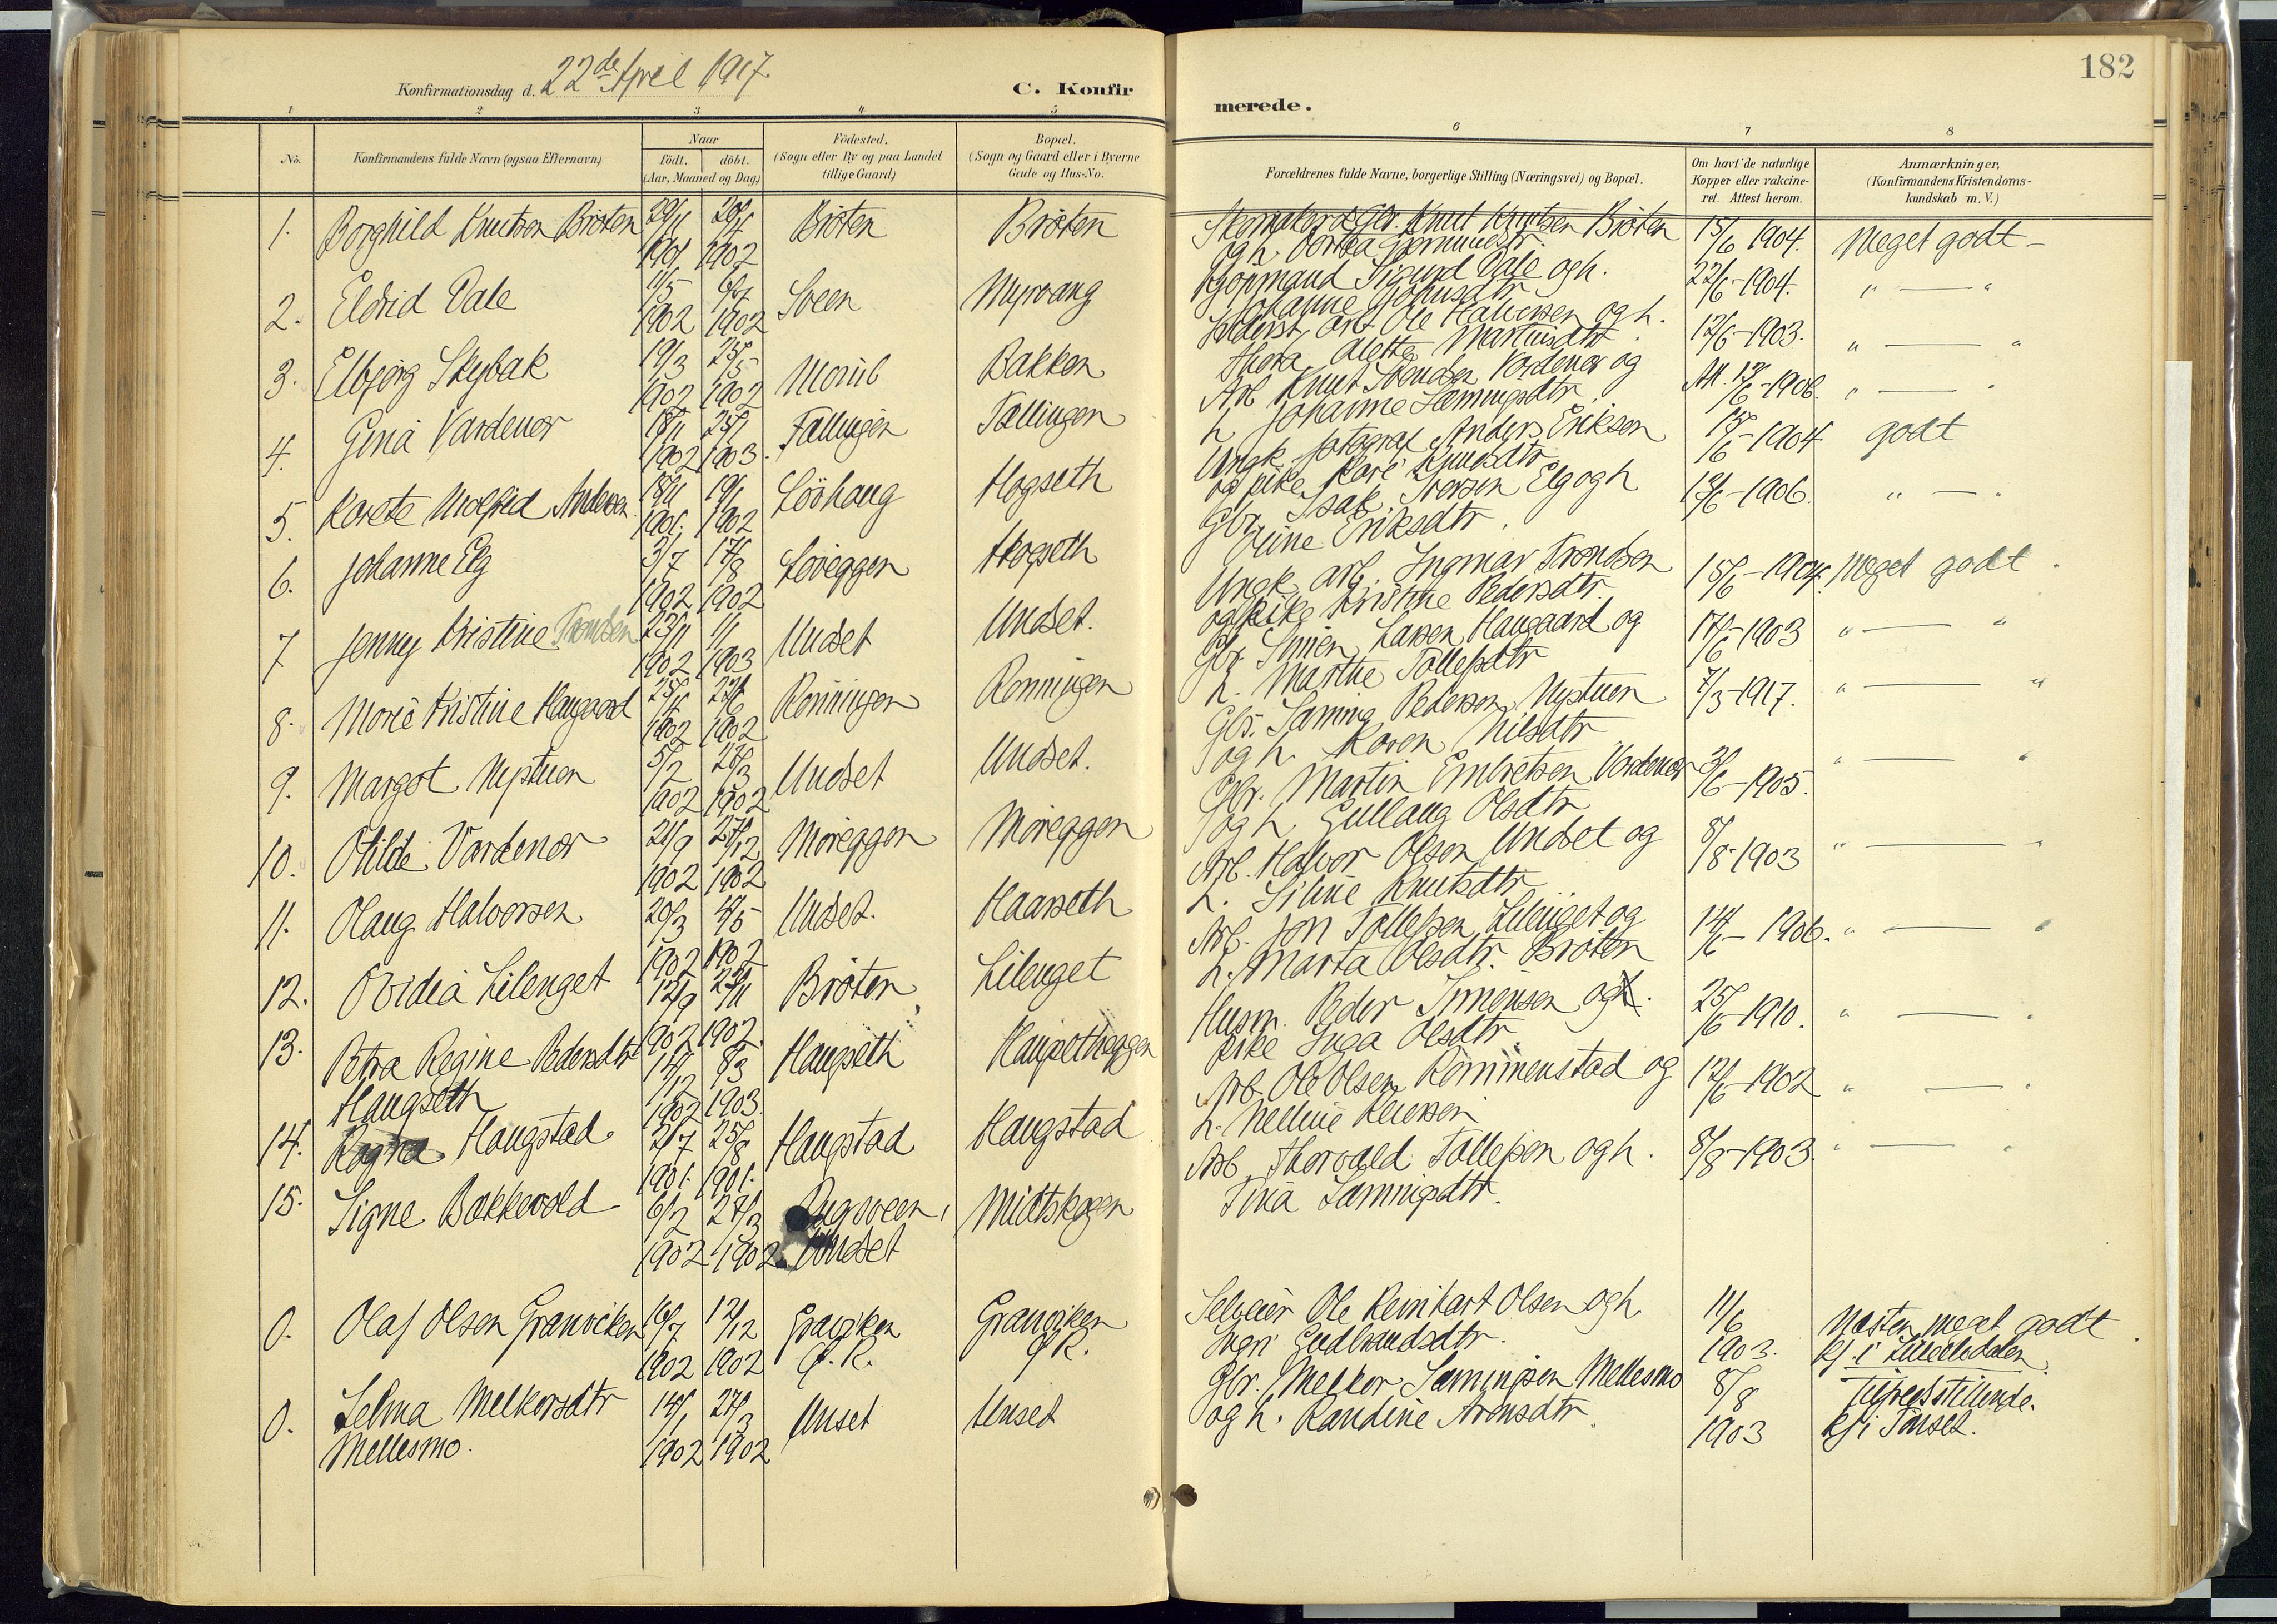 182
Konfirmationsdag d. 22de April 1917.
C. Konfir
merede.
1 2 3 4 5 6 7 8
No.
Konfirmandens fulde Navn (ogsaa Efternavn)
Naar
født. døbt.
(Aar, Maaned og Dag)
Födested.
(Sogn eller By og paa Landet
tillige Gaard)
Bopæl.
(Sogn og Gaard eller i Byerne
Gade og Hus-No.
Forældrenes fulde Navne, borgerlige Stilling (Næringsvei) og Bopæl.
Om havt de naturlige
Kopper eller vakcine-
ret. Attest herom.
Anmærkninger,
(Konfirmandens Kristendoms-
kundskab m. V.)
1. Borghild Knutsen Bröten 1901 1902 Bröten Bröten Knut Knutsen Bröten 15/6 1904. Meget godt
og h.
2. Eldrid Dale 11/5 1902 1902 Sveen Myrvang Kjöpmand Sigurd Dale og h. 22/6-1904. " — "
Johanne
3. Elbjörg Skybak 19/3 1902 25/5 1902 Bakken arb. Ole Halvorsen og h. 12/6-1903. " — "
Thora Alette Martinsdtr.
4. Gina Vardenær 18/11 1902 25/1 1903. Fallingen Fallingen Arb. Knut Vardenær og 1906. " — "
h. Johanne Sæmingsdtr
5. Karete Andersen 1901. 19/1 1902 Lövhaug Hogseth Ungk. fotograf Anders Eriksen 1904 godt
og pike Kari Knutsdtr.
6. Johanne Elg 3/7 1902 17/8 1902 Löveggen Hogseth Gbr. Isak Iversen Elg og h 12/6-1906. " — "
Eriksdtr.
7 Jenny Kristine Trondsen 23/11 1902 1/1 1903 Undset Undset. Ungk. arb. Ingmar Trondsen 15/6-1904. Meget godt.
og pike Kristine Pedersdtr.
8. Marie Kristine Haugaard 1902 1902 Rönningen Rönningen Gbr. Simen Larsen Haugaard og 17/6-1903 " — "
h. Marthe Tollefsdtr
9. Margot Nystuen 5/2 1902 28/3 1902 Undset Undset. Gbr. Pedersen Nystuen 7/3-1917. " — "
og h. Karen Nilsdtr
10. Otilde Vardenær 21/9 1902 27/12 1902 Möreggen Möreggen Gbr. Martin Embretsen Vardenær 3/6-1905. " — "
og h. Gullaug Olsdtr
11. Olaug Halvorsen 20/3 1902 4/5 1902 Undset. Haarseth Arb. Halvor Olsen Undset og 8/8-1903 " — "
h. Siline Knutsdtr
12. Ovidia Lilenget 12/9 1902 23/11 1902. Bröten Lilenget Arb. Jon Tollefsen Lilenget og 14/6-1906. " — "
h. Marta Olsdtr. Bröten
13. Petra Regine Pedersdtr 14/12 1902 8/3 1903. Haugseth Haugsetheggen Husm. Peder Simensen og 25/6-1910. " — "
Haugseth
pike Inga Olsdtr.
14. Ragna Haugstad 2/7 1901. 25/8 1901. Haugstad Haugstad Arb. Ole Olsen Römmenstad og 12/6-1902 " — "
h. Nelline
15. Signe Bakkevold 6/2 1902 27/3 1902 Rugsveen, Undset Midtskogen Arb. Thorvald Tollefsen og h. 8/8-1903. " — "
Tina Sæmingsdtr.
0. Olaf Olsen Granviken 16/7 1902 12/12 1902 Graviken Ö. R. Granviken Ö R. Selveier Ole Reinhart Olsen og h 11/6 1903. Næsten meget godt.
Ingri Gudbrandsdtr.
Kf. i Lilleelvedalen.
0. Selma Melkersdtr 14/1 1902 27/3 1902 Unset Unset Gbr. Melker Sæmingsen Mellesmo 8/8 1903 Tilfredsstillende.
Mellesmo.
og h. Randine Aronsdtr.
Kf i Tönset.